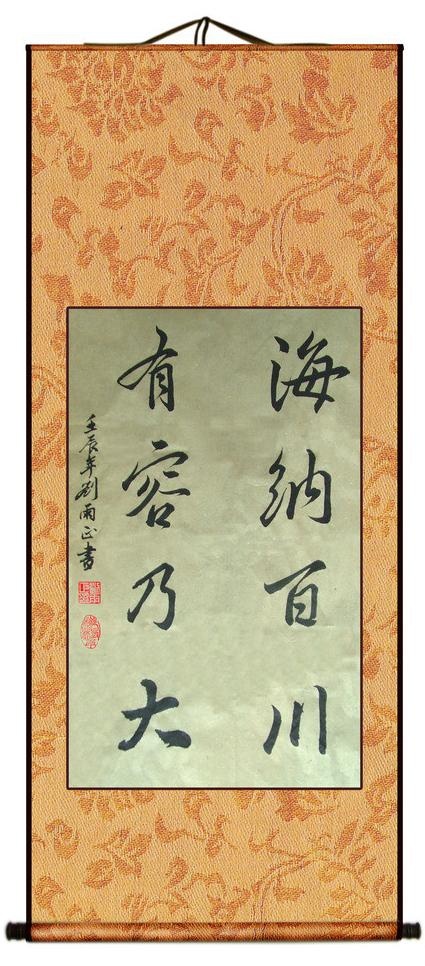 海纳百川
有容乃大
壬辰年刘雨正书